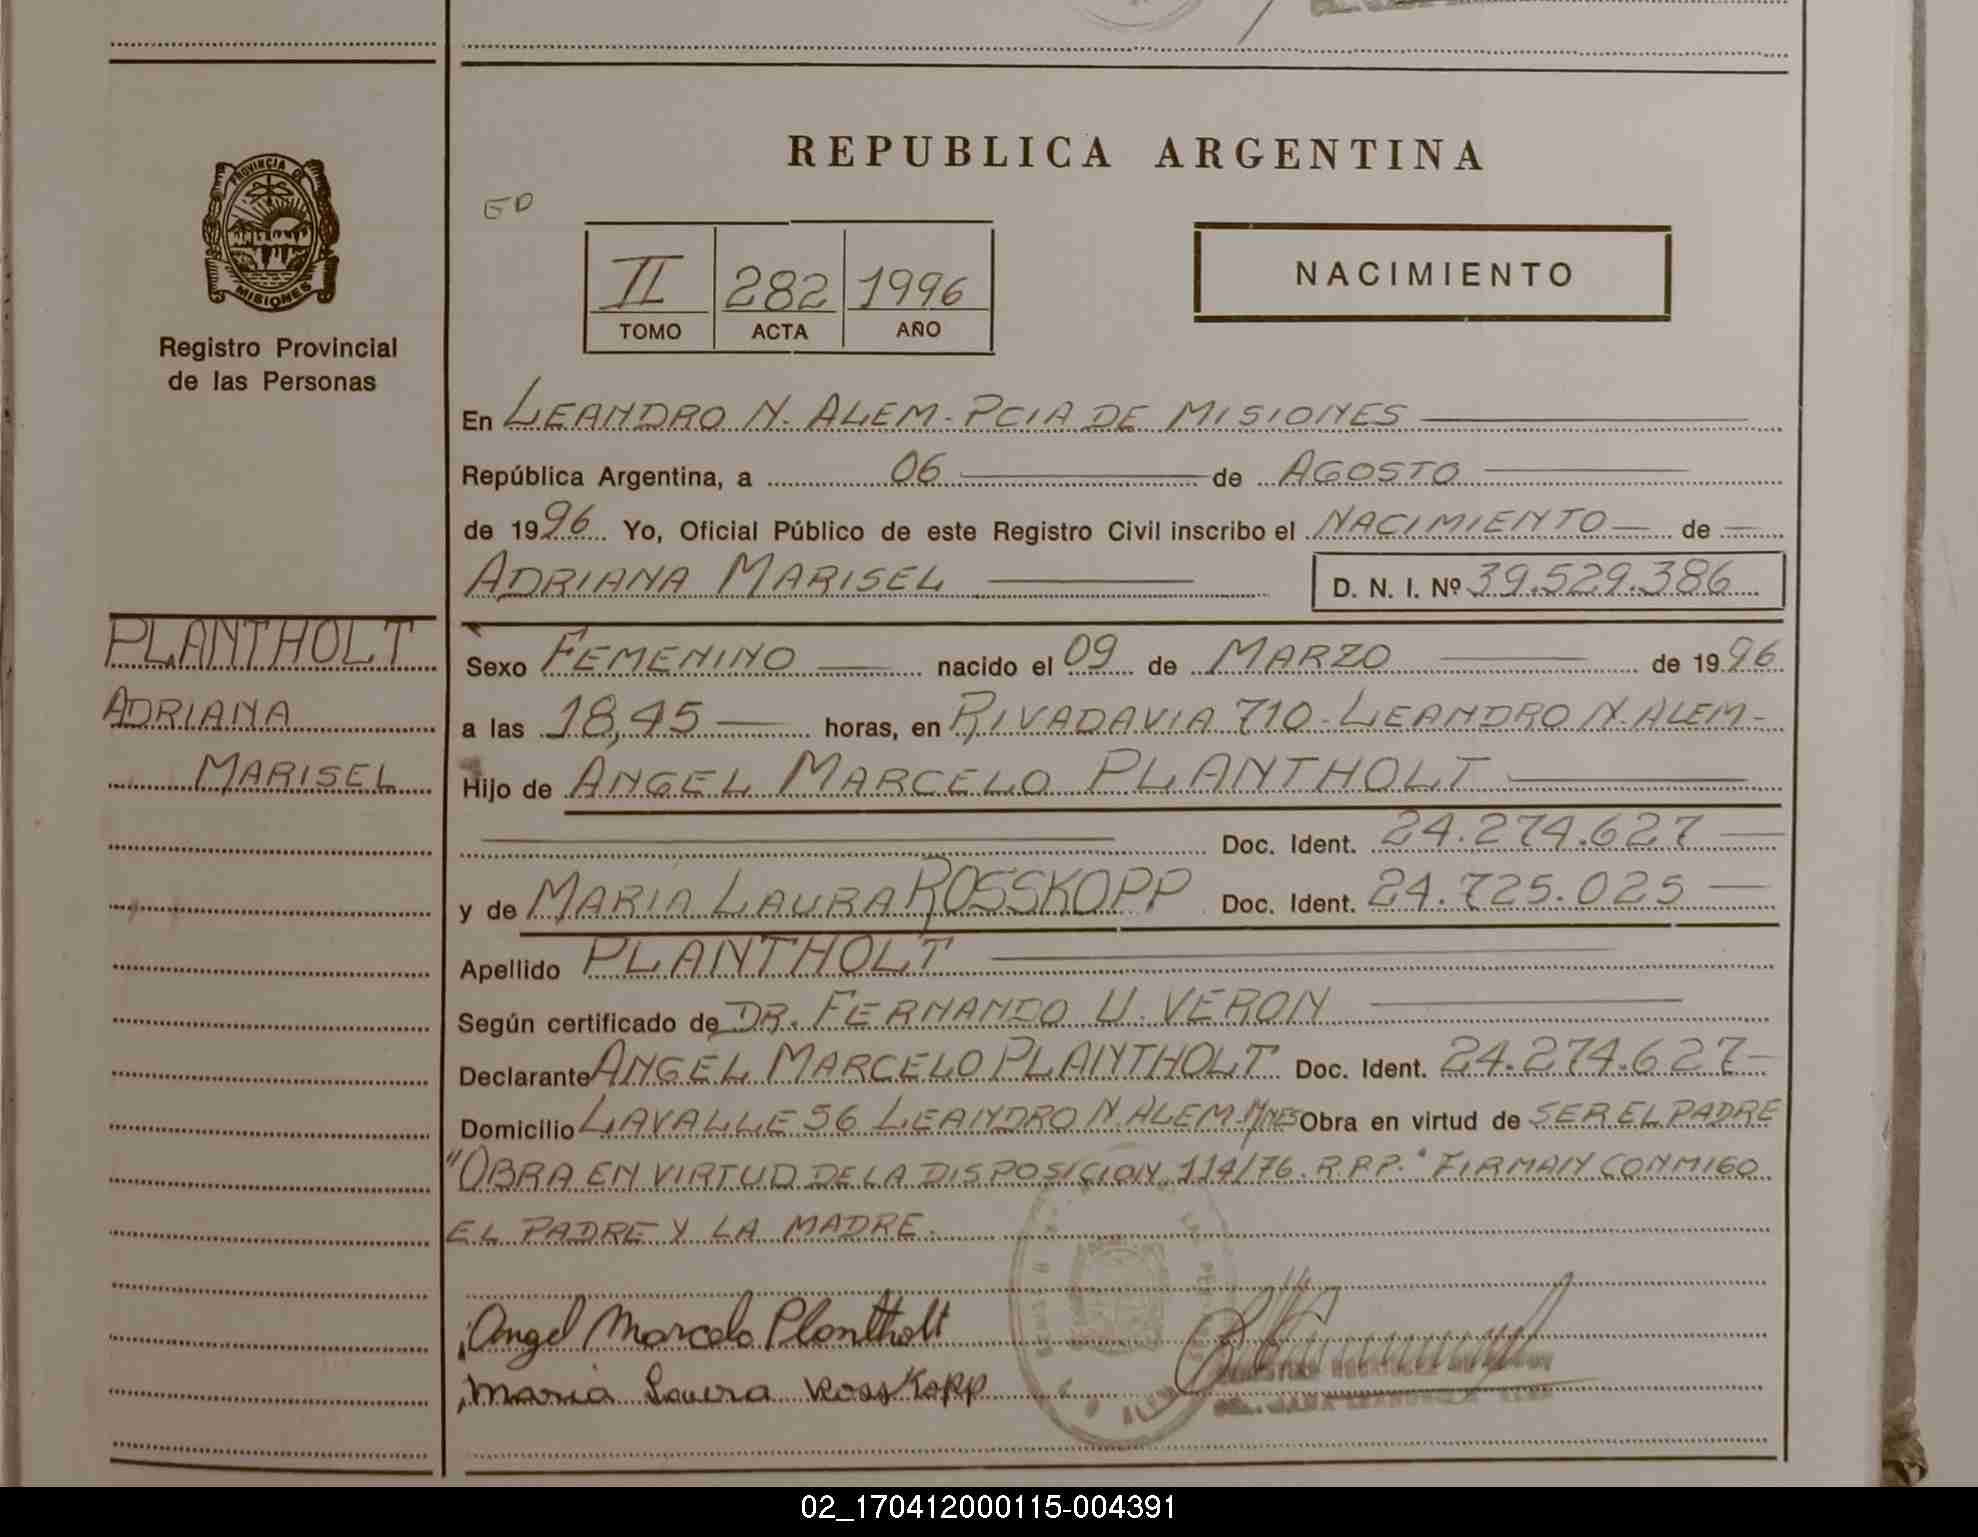 REPUBLICA ARGENTINA
PROVINCIA DE
MISIONES
Registro Provincial
de las Personas
ED
II 282 1996
TOMO ACTA AÑO
NACIMIENTO
En LEANDRO N. ALEM - PCIA DE MISIONES
República Argentina, a 06 de AGOSTO
de 1996 Yo, Oficial Público de este Registro Civil inscribo el NACIMIENTO de
ADRIANA MARISEL D. N. I. Nº 39.529.386
PLANTHOLT
ADRIANA
MARISEL
Sexo FEMENINO nacido el 09 de MARZO de 1996
a las 18,45 horas, en RIVADAVIA 710 - LEANDRO N. ALEM -
Hijo de ANGEL MARCELO PLANTHOLT
Doc. Ident. 24.274.627
y de MARIA LAURA ROSSKOPP Doc. Ident. 24.725.025
Apellido PLANTHOLT
Según certificado de DR. FERNANDO U. VERON
Declarante ANGEL MARCELO PLANTHOLT Doc. Ident. 24.274.627
Domicilio LAVALLE 56 LEANDRO N. ALEM - Mnes Obra en virtud de SER EL PADRE
"OBRA EN VIRTUD DE LA DISPOSICION 114/76. R.P.P." FIRMAN CONMIGO
EL PADRE Y LA MADRE.
Angel Marcelo Plantholt
Maria Laura Rosskopp
02_170412000115-004391